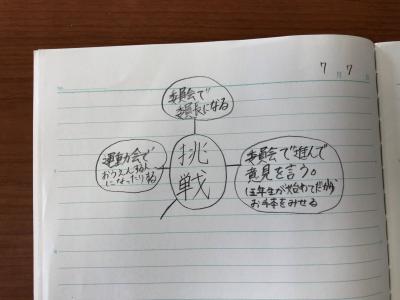 7月7日
委員会で
委員長になる
挑
戦
運動会で
おうえんする人
になったりする
委員会で進んで
意見を言う。
(五年生が始めてだから
お手本をみせる